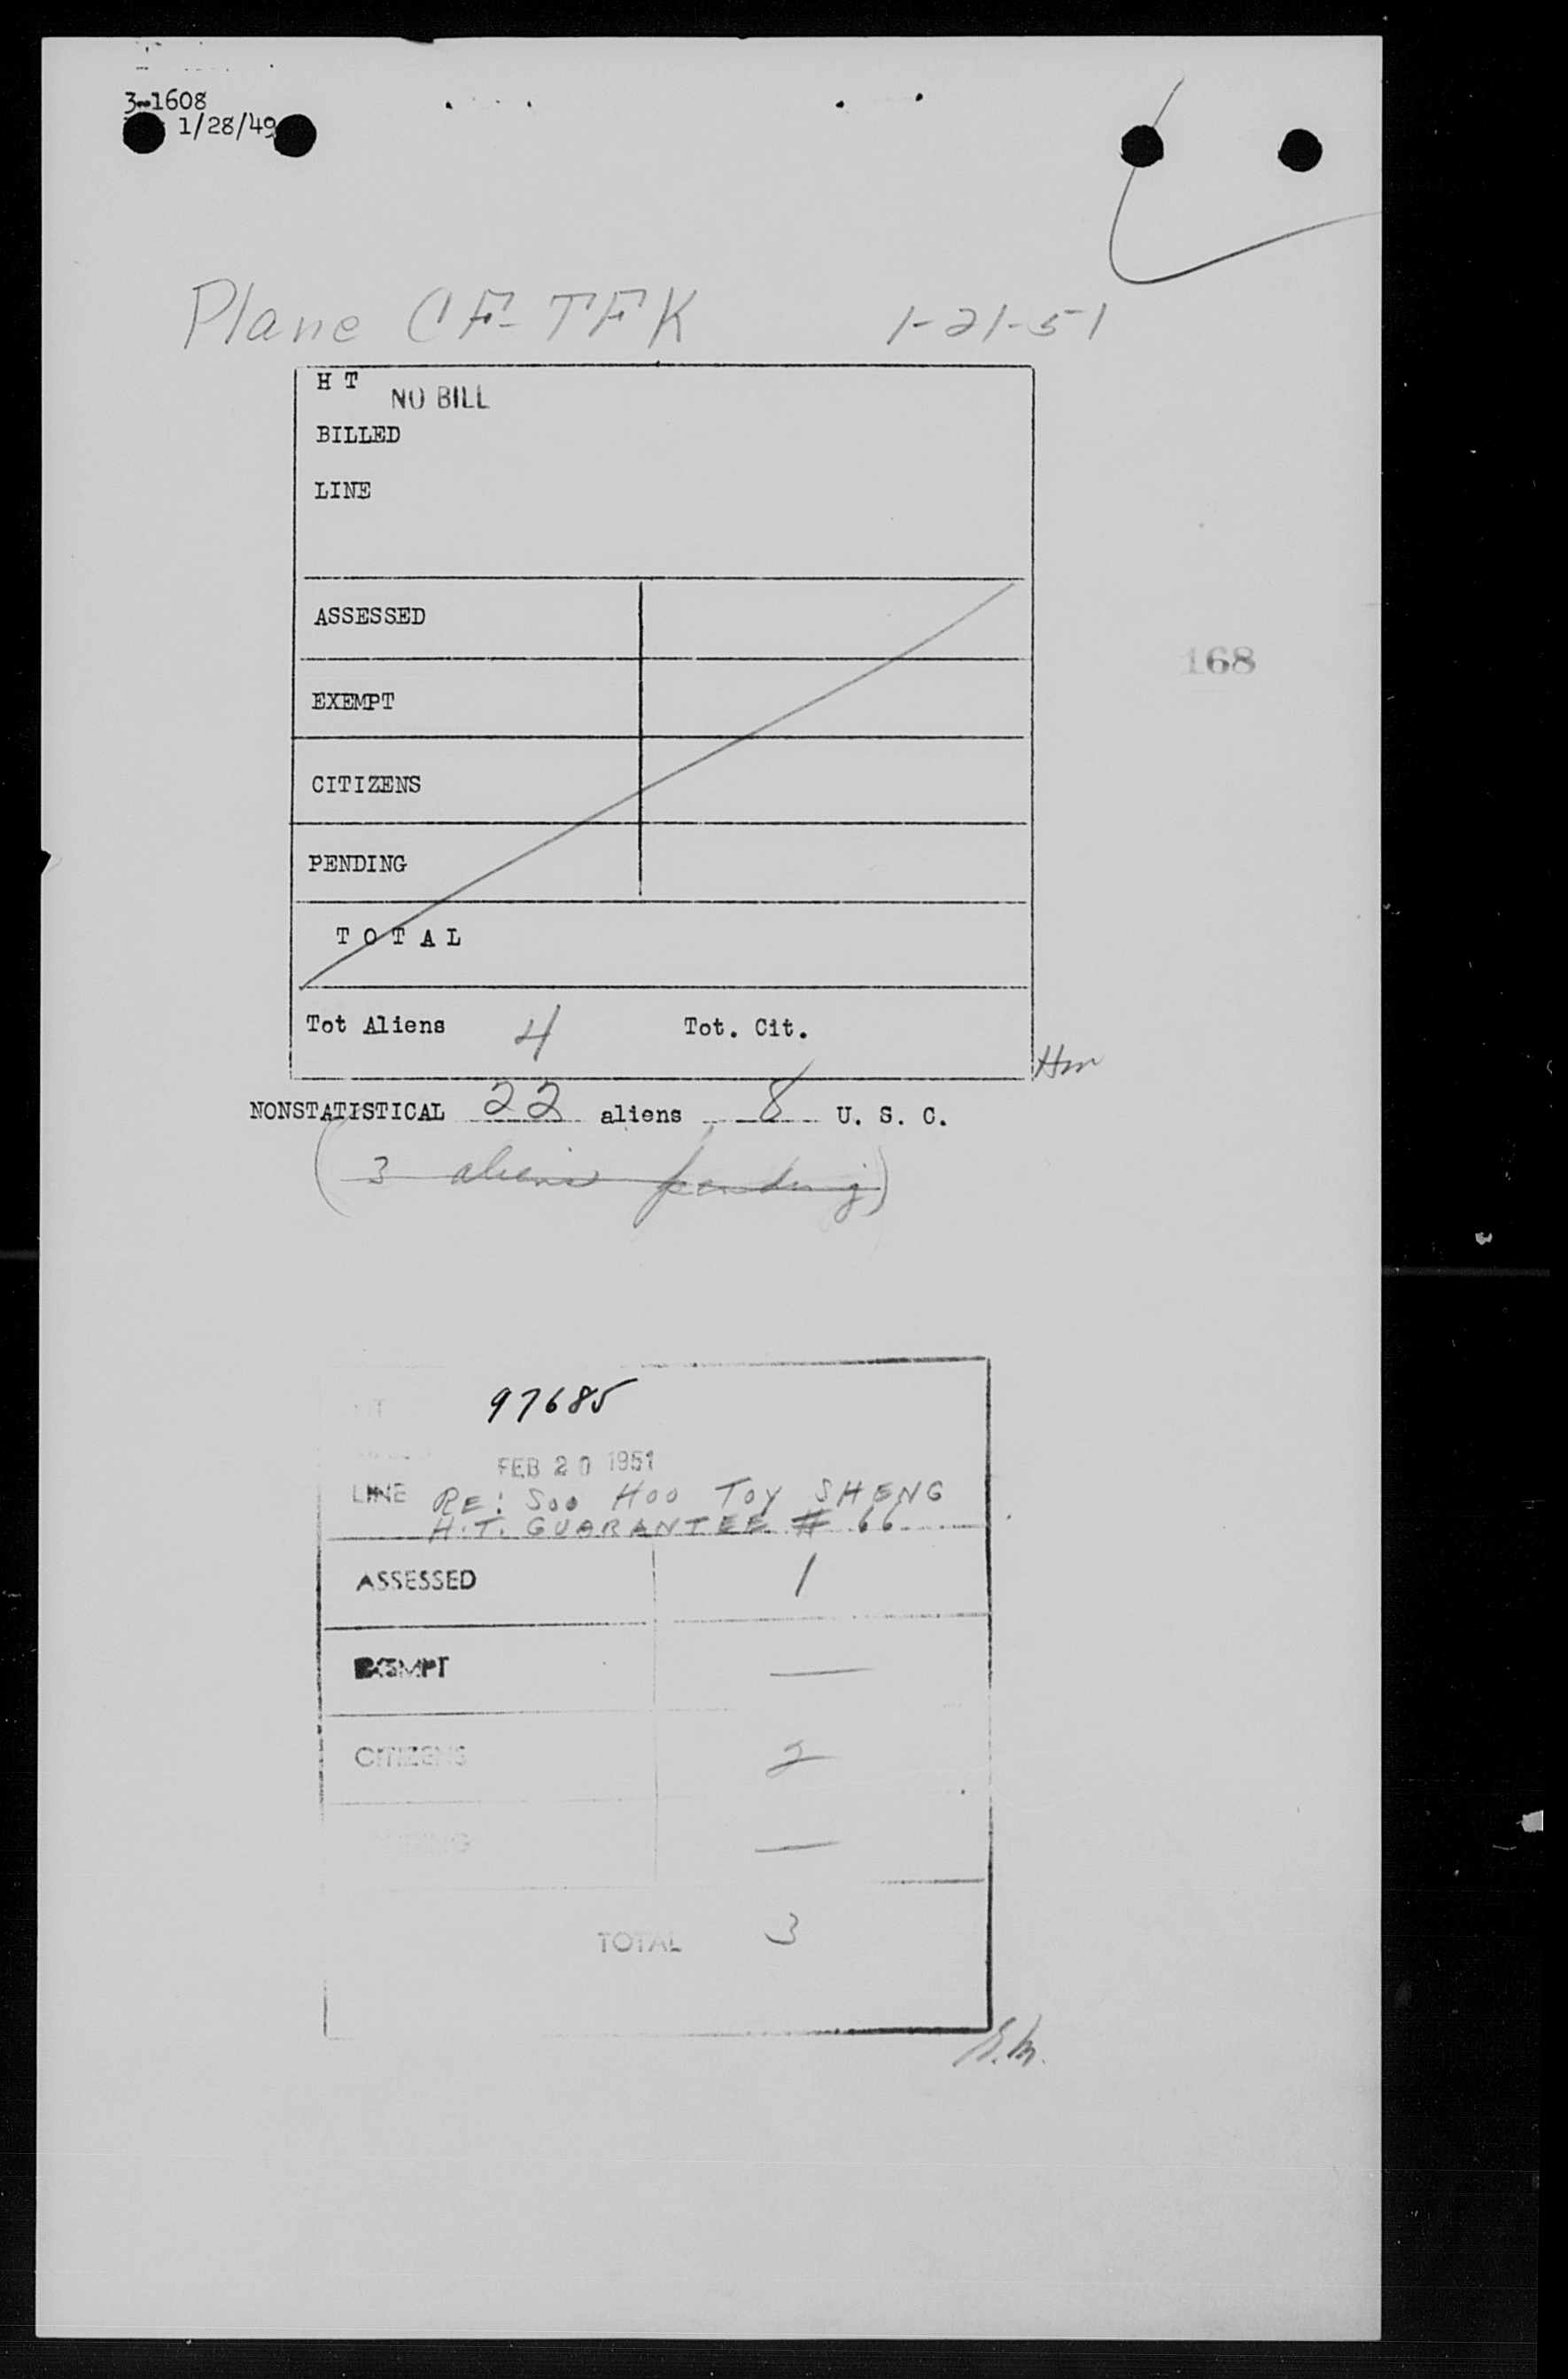 3-1608
1/28/49
Plane CF-TFK 1-21-51
H T
NO BILL
BILLED
LINE
ASSESSED
168
EXEMPT
CITIZENS
PENDING
TOTAL
Tot Aliens 4 Tot. Cit.
NONSTATISTICAL 22 aliens 8 U. S. C.
(3 aliens pending)
HT 97685
FEB 20 1951
LINE RE: SOO HOO TOY SHENG
H.T. GUARANTEE # 66
ASSESSED 1
EXEMPT —
CITIZENS 2
PENDING —
TOTAL 3